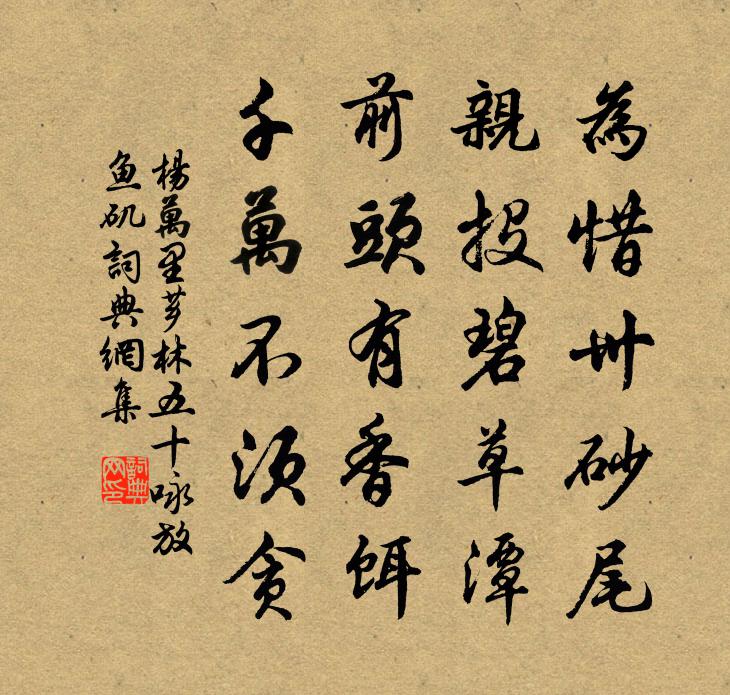 為惜卅砂尾
親投碧草潭
前頭有香餌
千萬不須貪
楊萬里芗林五十咏放
鱼矶詞典網集
詞典
网印